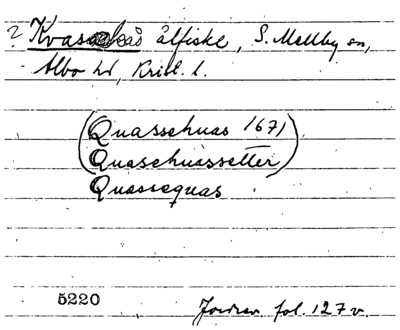 ? Kvasahås ålfiske, S. Mellby sn,
Albo hd, Krist. l.
(Quassehuas 1671)
(Quasehuassetter)
Quassequas
5220
Jordrev. fol. 127 v.